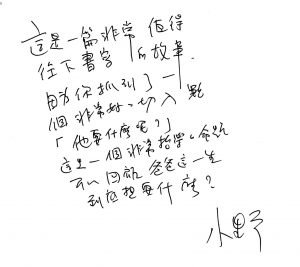 這是一篇非常 值得
往下書寫 的故事
因為你抓到了一
個非常好的切入點
「他要什麼呢?」
這是一個非常哲學的命題
可以回顧爸爸這一生
到底想要什麼?
小野